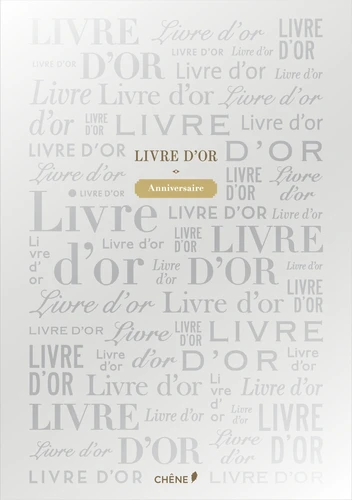 LIVRE LIVRE D'OR Livre d'or LIVRE D'OR
LIVRE D'OR D'OR Livre d'or Livre d'or
Livre Livre d'or Livre d'or
d'or LIVRE D'OR LIVRE Livre d'or
LIVRE D'OR LIVRE D'OR D'OR
Livre d'or Anniversaire LIVRE D'OR Livre d'or
LIVRE D'OR
Livre LIVRE D'OR Livre d'or
Li vre d' or d'or LIVRE D'OR LIVRE
Livre d'or D'OR Livre d'or
Livre d'or Livre d'or Livre d'or
LIVRE D'OR Livre LIVRE D'OR LIVRE
LIVRE D'OR Livre d'or d'or D'OR Livre d'or
Livre d'or Li vre d' or LIVRE D'OR Livre d'or
LIVRE Livre d'or Livre d'or LIVRE D'OR
Livre d'or D'OR LIVRE Livre d'or
LIVRE D'OR Livre d'or D'OR Livre d'or
CHÊNE